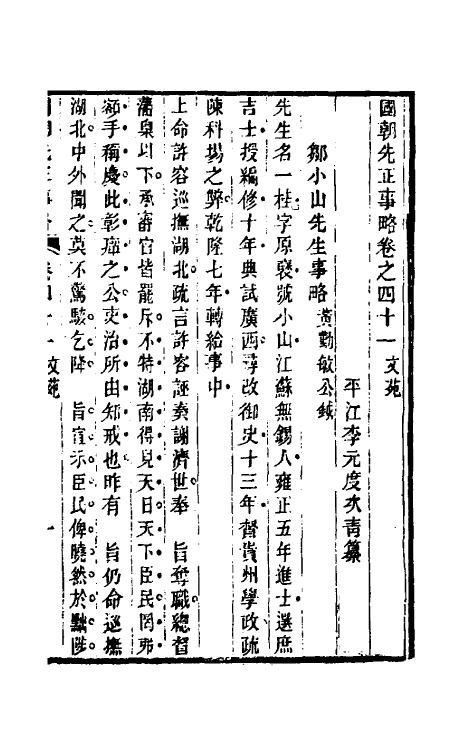 國朝先正事略卷之四十一 文苑
平江李元度次青纂
鄒小山先生事略 黃勤敏公鉞
先生名一桂字原褎號小山江蘇無錫人雍正五年進士選庶
吉士授編修十年典試廣西尋改御史十三年督貴州學政疏
陳科場之弊乾隆七年轉給事中
上命許容巡撫湖北疏言許容誣奏謝濟世奉 旨奪職總督
藩臬以下承審官皆罷斥不特湖南得見天日天下臣民罔弗
額手稱慶此彰癉之公吏治所由知戒也昨有 旨仍命巡撫
湖北中外聞之莫不驚駭乞降 旨宣示臣民俾曉然於黜陟
國朝先正事略 卷四十一 文苑 一